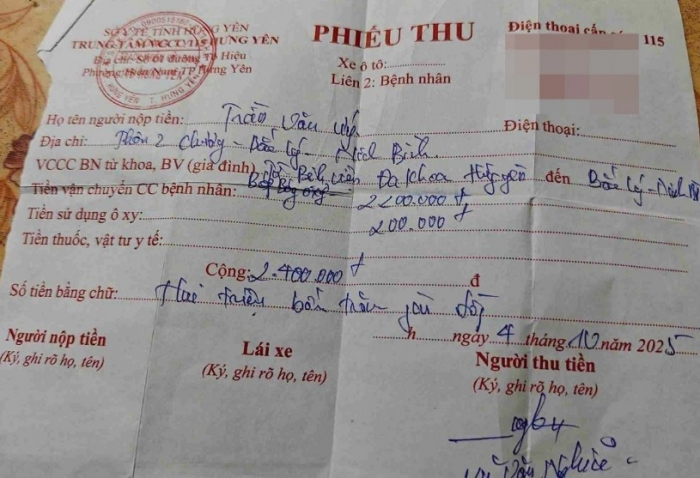 SỞ Y TẾ TỈNH HƯNG YÊN
TRUNG TÂM VCCC 115 HƯNG YÊN
Địa chỉ: Số 01 đường Tô Hiệu
Phường Hiến Nam TP Hưng Yên
PHIẾU THU
Xe ô tô:
Liên 2: Bệnh nhân
Điện thoại cấp 115
Họ tên người nộp tiền: Trần Văn
Điện thoại:
Địa chỉ: Thôn 2 - Bắc Lý - Ninh Bình
VCCC BN từ khoa, BV (gia đình) Bệnh viện Đa khoa Hưng Yên đến Bắc Lý - Ninh
Tiền vận chuyển CC bệnh nhân: 2200.000 đ
Tiền sử dụng ô xy: 200.000
Tiền thuốc, vật tư y tế:
Cộng: 2.400.000 đ đ
Số tiền bằng chữ: Hai triệu bốn trăm đồng
h ngày 4 tháng 10 năm 2025
Người nộp tiền
(Ký, ghi rõ họ, tên)
Lái xe
(Ký, ghi rõ họ, tên)
Người thu tiền
(Ký, ghi rõ họ, tên)